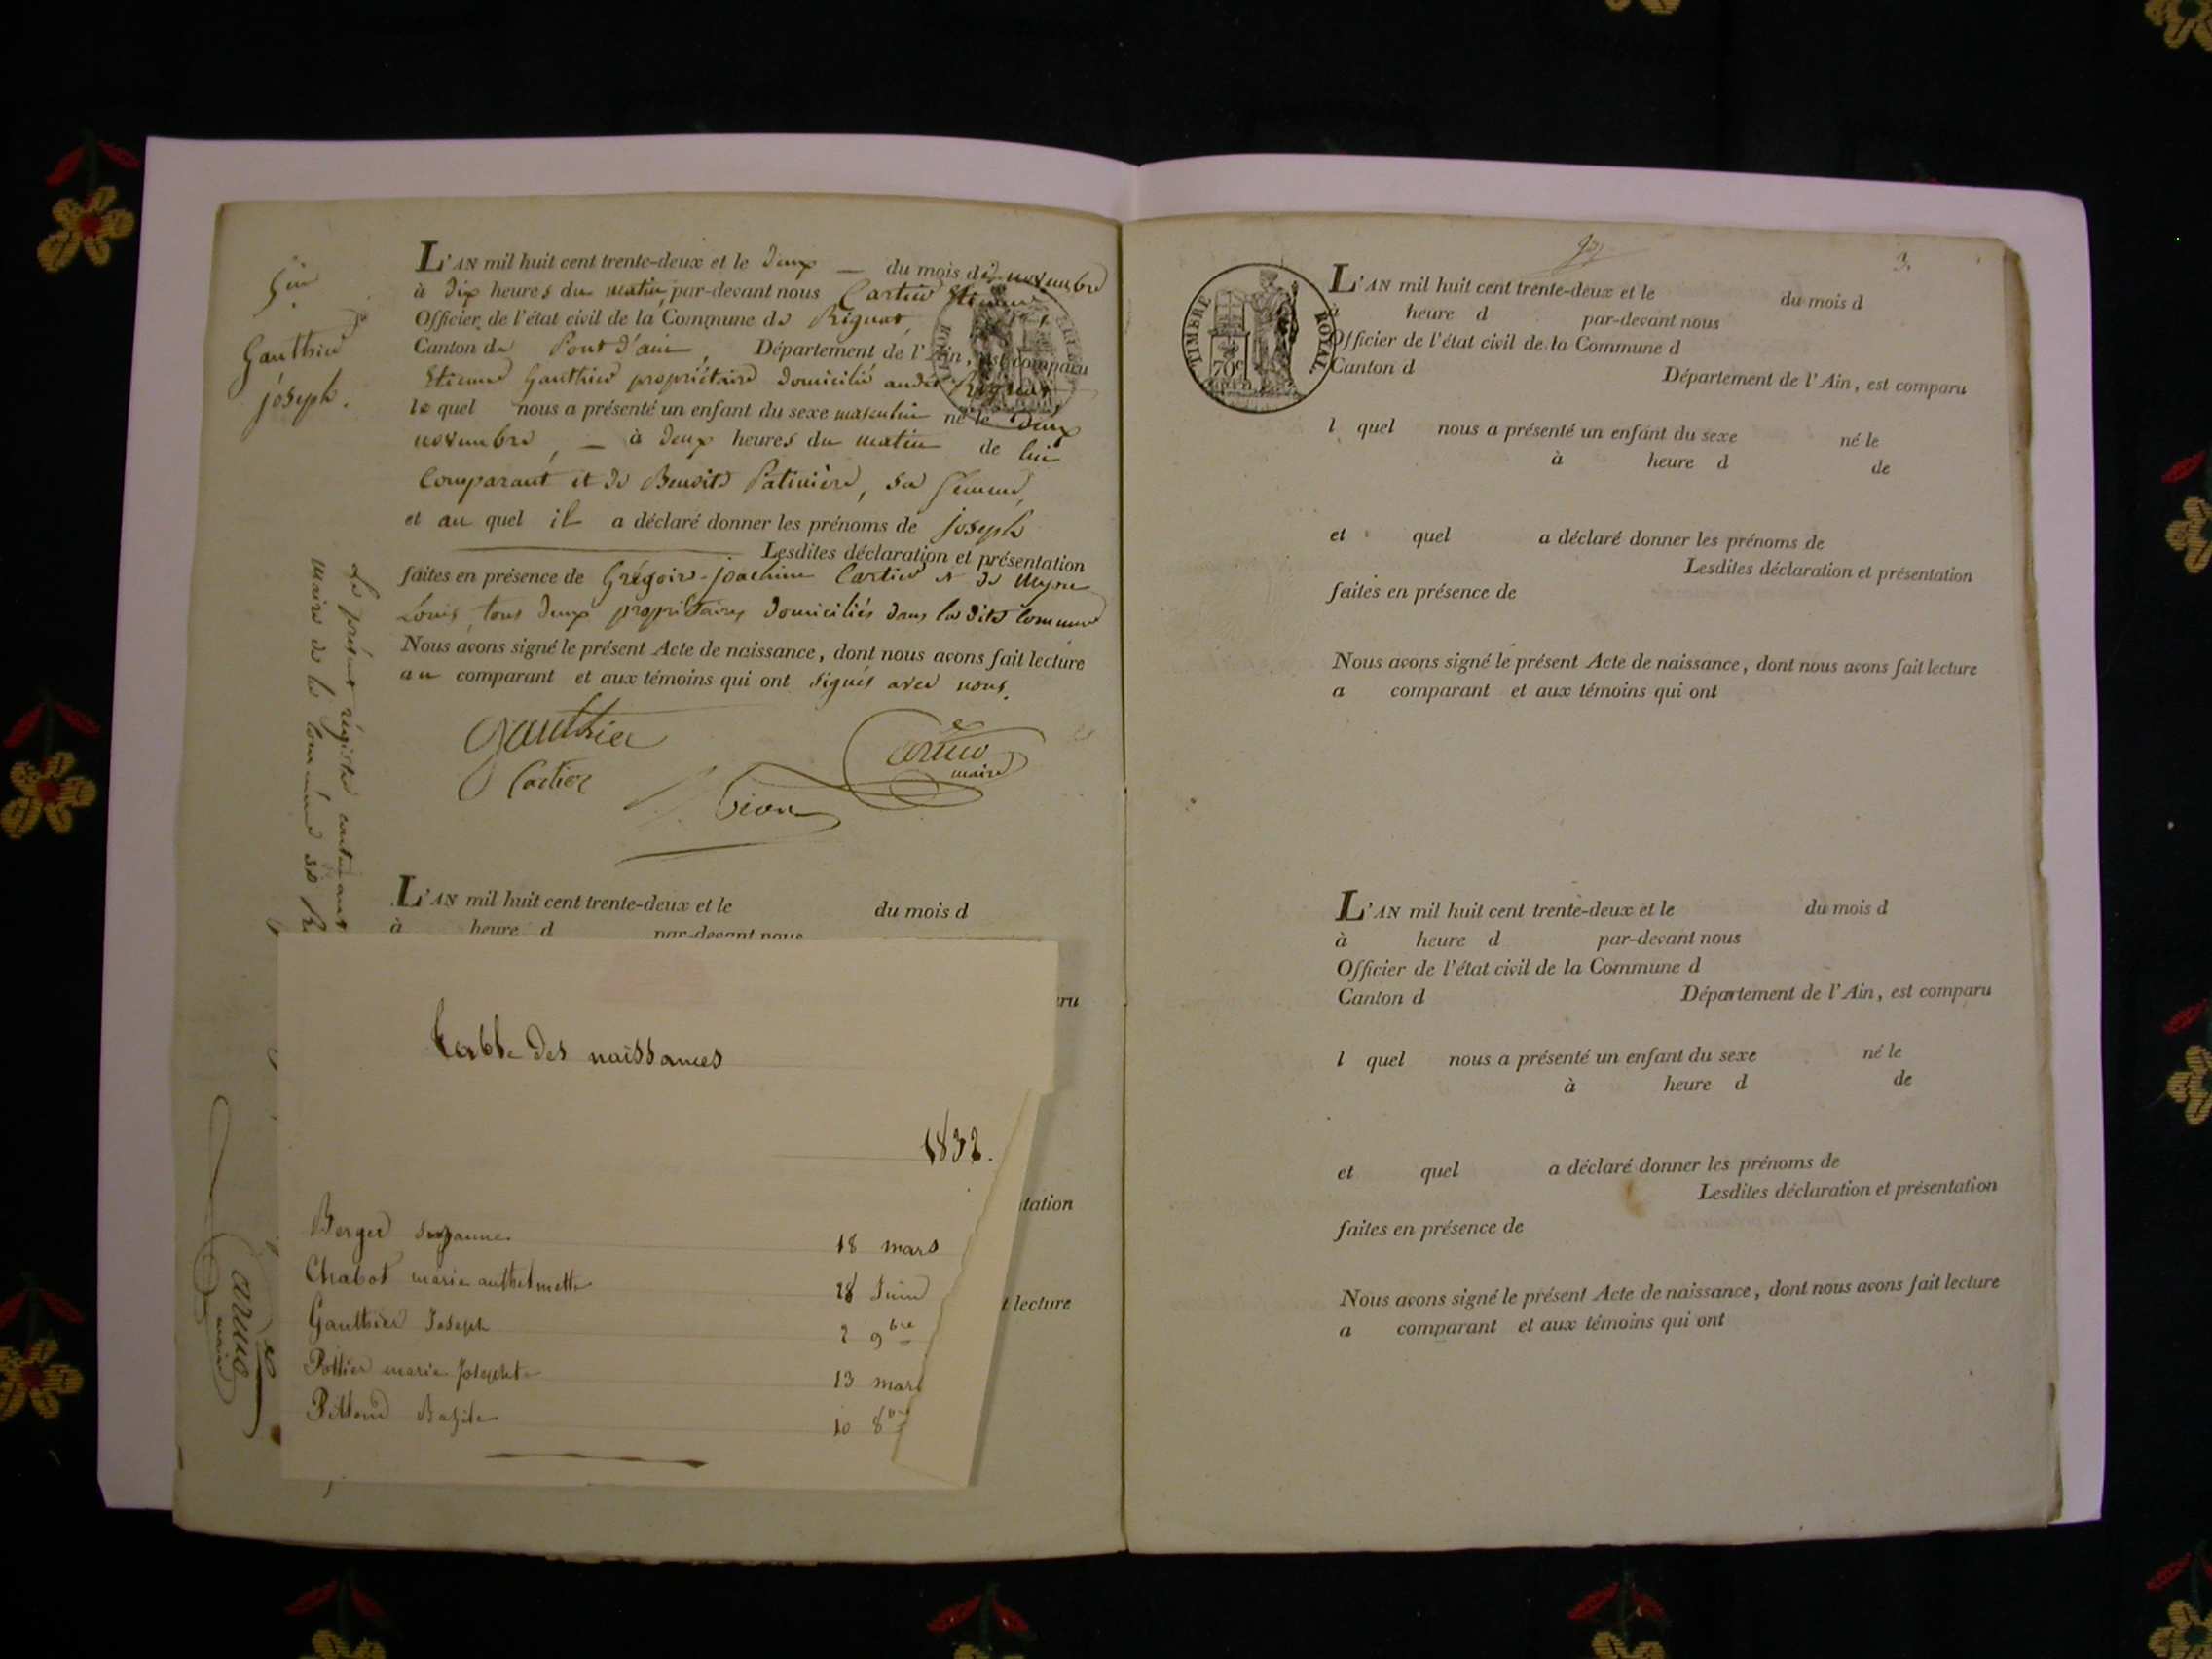 5me
Gauthier
joseph.
L'AN mil huit cent trente-deux et le deux — du mois de novembre
à dix heures du matin, par-devant nous Cartier Etienne
Officier de l'état civil de la Commune de Rignat,
Canton de Pont d'ain, Département de l'Ain, est comparu
Etienne Gauthier propriétaire domicilié audit Rignat
le quel nous a présenté un enfant du sexe masculin né le deux
novembre, — à deux heures du matin de lui
Comparant et de Benoite Patinière, sa femme,
et au quel il a déclaré donner les prénoms de joseph
Lesdites déclaration et présentation
faites en présence de Grégoire-joachim Cartier & de
Louis, tous deux propriétaires domiciliés dans la dite commune
Nous avons signé le présent Acte de naissance, dont nous avons fait lecture
au comparant et aux témoins qui ont signés avec nous.
Gauthier
Cartier
maire
Le présent régistre contenant
maire de la commune de
L'AN mil huit cent trente-deux et le du mois d
à heure d par-devant nous
ru
tation
t lecture
Table des naissances
1832.
Berger Suzanne 18 mars
Chabot marie anthelmette 28 Juin
Gauthier Joseph 2 9bre
Pottier marie Josephte 13 mars
Bazile 10 8bre
maire
3.
TIMBRE ROYAL.
70c
L'AN mil huit cent trente-deux et le du mois d
heure d par-devant nous
Officier de l'état civil de la Commune d
Canton d Département de l'Ain, est comparu
l quel nous a présenté un enfant du sexe né le
à heure d de
et quel a déclaré donner les prénoms de
Lesdites déclaration et présentation
faites en présence de
Nous avons signé le présent Acte de naissance, dont nous avons fait lecture
a comparant et aux témoins qui ont
L'AN mil huit cent trente-deux et le du mois d
à heure d par-devant nous
Officier de l'état civil de la Commune d
Canton d Département de l'Ain, est comparu
l quel nous a présenté un enfant du sexe né le
à heure d de
et quel a déclaré donner les prénoms de
Lesdites déclaration et présentation
faites en présence de
Nous avons signé le présent Acte de naissance, dont nous avons fait lecture
a comparant et aux témoins qui ont